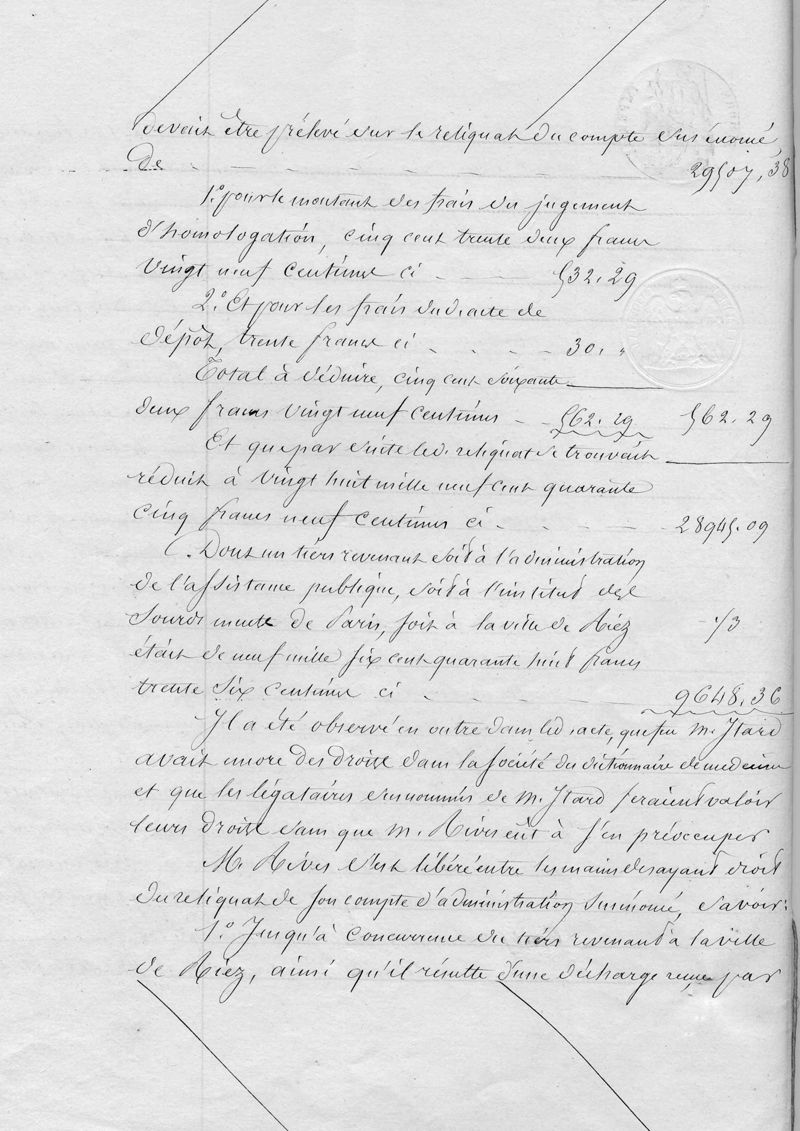 devait être prélevé sur le reliquat du compte susénoncé,
De - - - - - - 29507,38
1.° pour le montant des frais du jugement
d'homologation, cinq cent trente deux francs
vingt neuf centimes ci - - - 532.29
2.° Et pour les frais dud. acte de
dépôt, trente francs ci - - - - 30. "
Total à déduire, cinq cent soixante
deux francs vingt neuf centimes - 562.29 562.29
Et que par suite led. reliquat se trouvait
réduit à vingt huit mille neuf cent quarante
cinq francs neuf centimes ci - - - - 28945.09
Dont un tiers revenant soit à l'administration
de l'assistance publique, soit à l'institut des
Sourds muets de Paris, soit à la ville de Riez 1/3
était de neuf mille six cent quarante huit francs
trente six centimes ci - - - - 9648.36
Il a été observé en outre dans led. acte, que feu M. Itard
avait encore des droits dans la société du dictionnaire de médecine
et que les légataires susnommés de M. Itard feraient valoir
leurs droits sans que M. Rives eût à s'en préoccuper
M. Rives s'est libéré entre les mains des ayant droit
du reliquat de son compte d'administration susénoncé, savoir:
1.° Jusqu'à concurrence du tiers revenant à la ville
de Riez, ainsi qu'il résulte d'une décharge reçue par